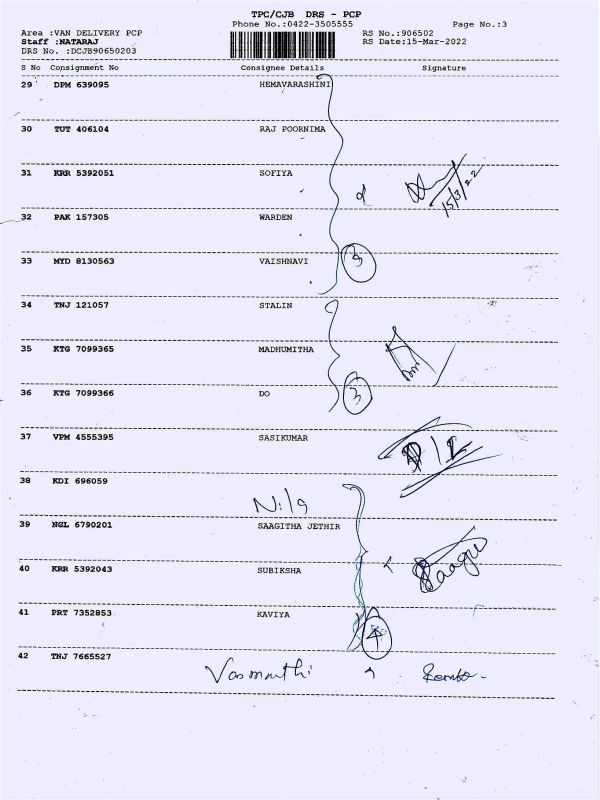 TPC/CJB DRS - PCP
Phone No.:0422-3505555 Page No.:3
Area :VAN DELIVERY PCP RS No.:906502
Staff :NATARAJ RS Date:15-Mar-2022
DRS No. :DCJB90650203
S No Consignment No Consignee Details Signature
29 DPM 639095 HEMAVARASHINI
30 TUT 406104 RAJ POORNIMA
31 KRR 5392051 SOFIYA
15/3/22
32 PAK 157305 WARDEN
33 MYD 8130563 VAISHNAVI
34 TNJ 121057 STALIN
35 KTG 7099365 MADHUMITHA
36 KTG 7099366 DO
3
37 VPM 4555395 SASIKUMAR
38 KDI 696059
Nila
39 NGL 6790201 SAAGITHA JETHIR
40 KRR 5392043 SUBIKSHA
Saagi
41 PRT 7352853 KAVIYA
4
42 TNJ 7665527
Vasmathi